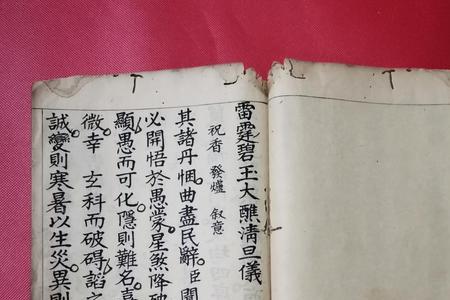 雷霆碧玉大醮清旦儀
祝香 發爐 叙意
其諸丹悃曲盡民辭。臣聞
必開悟於愚蒙星煞降
顯愚而可化。隱則難名。
微幸 玄科而破碍。謟之
誠。變則寒暑以生災。異則